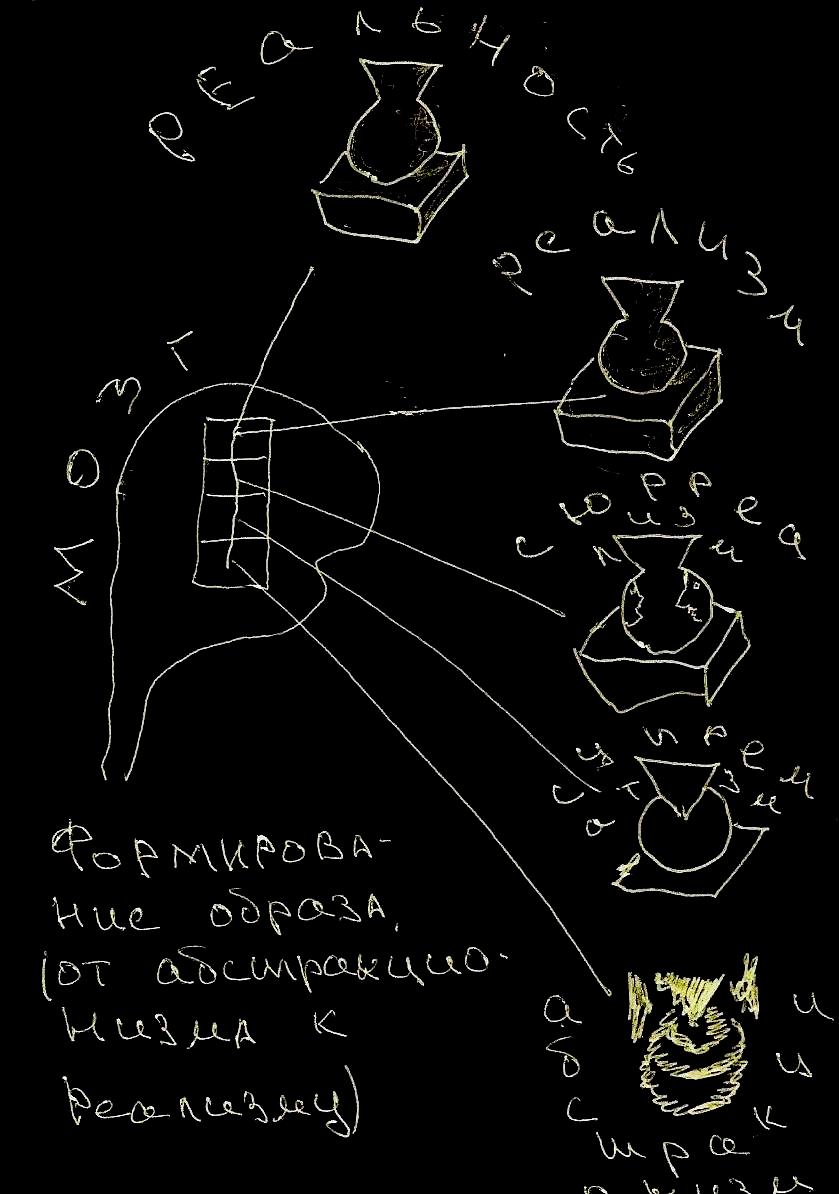 реальность
реализм
мозг
сюрреа
лизм
супрем
атизм
Формирова-
ние образа,
(от абстракцио-
низма к
реализму)
абстракци